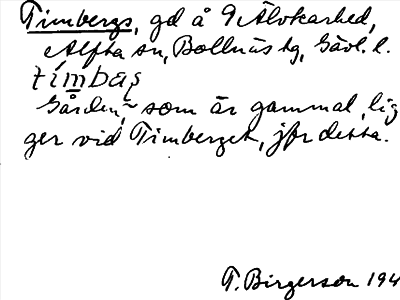 Timbergs, gd å Älvkarhed,
Alfta sn, Bollnäs tg, Gävl. l.
tímbas
Gården, som är gammal, lig
ger vid Timberget, jfr detta.
T. Birgerson 194